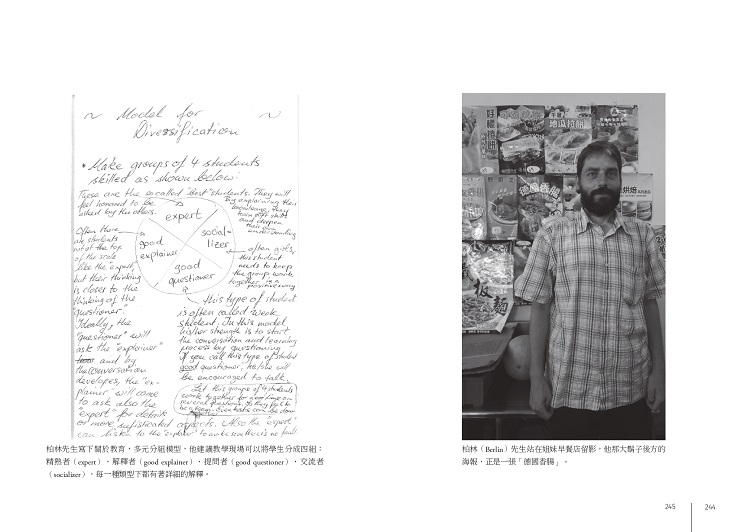 ~ Model for ~
Diversification
* Make groups of 4 students
skilled as shown below:
These are the so called "best" students. They will
feel honored to be
asked by the others.
By explaining their
knowledge, they
and deepen
their own
understanding
expert
social-
lizer
good
explainer
good
questioner
Often there
are students
not at the top
of the scale
like the "expert",
but their thinking
is closer to the
thinking of the
"questioner".
Ideally, the
"questioner" will
ask the "explainer"
and by
the conversation
developes, the "ex-
plainer" will come
to ask also the
"expert" for details
or more sofisticated aspects. Also the "expert"
can listen to the "explainer" to make sure there's no fault
often girls,
this student
needs to keep
the group work
together in a
positive way
this type of student
is often called weak
student. In this model
his/her strength is to start
the conversation and learning
process by questioning
If you call this type of student
good questioner, he/she will
be encouraged to talk.
Let this groups of 4 students
work together for a longer time on
several questions. So they get to
be a team.
柏林先生寫下關於教育,多元分組模型,他建議教學現場可以將學生分成四組:
精熟者(expert)、解釋者(good explainer)、提問者(good questioner)、交流者
(socializer),每一種類型下都有著詳細的解釋。
好樓
地瓜拉餅
德國香腸
烘焙
板麵
柏林(Berlin)先生站在姐妹早餐店留影,他那大鬍子後方的
海報,正是一張「德國香腸」。
245
244